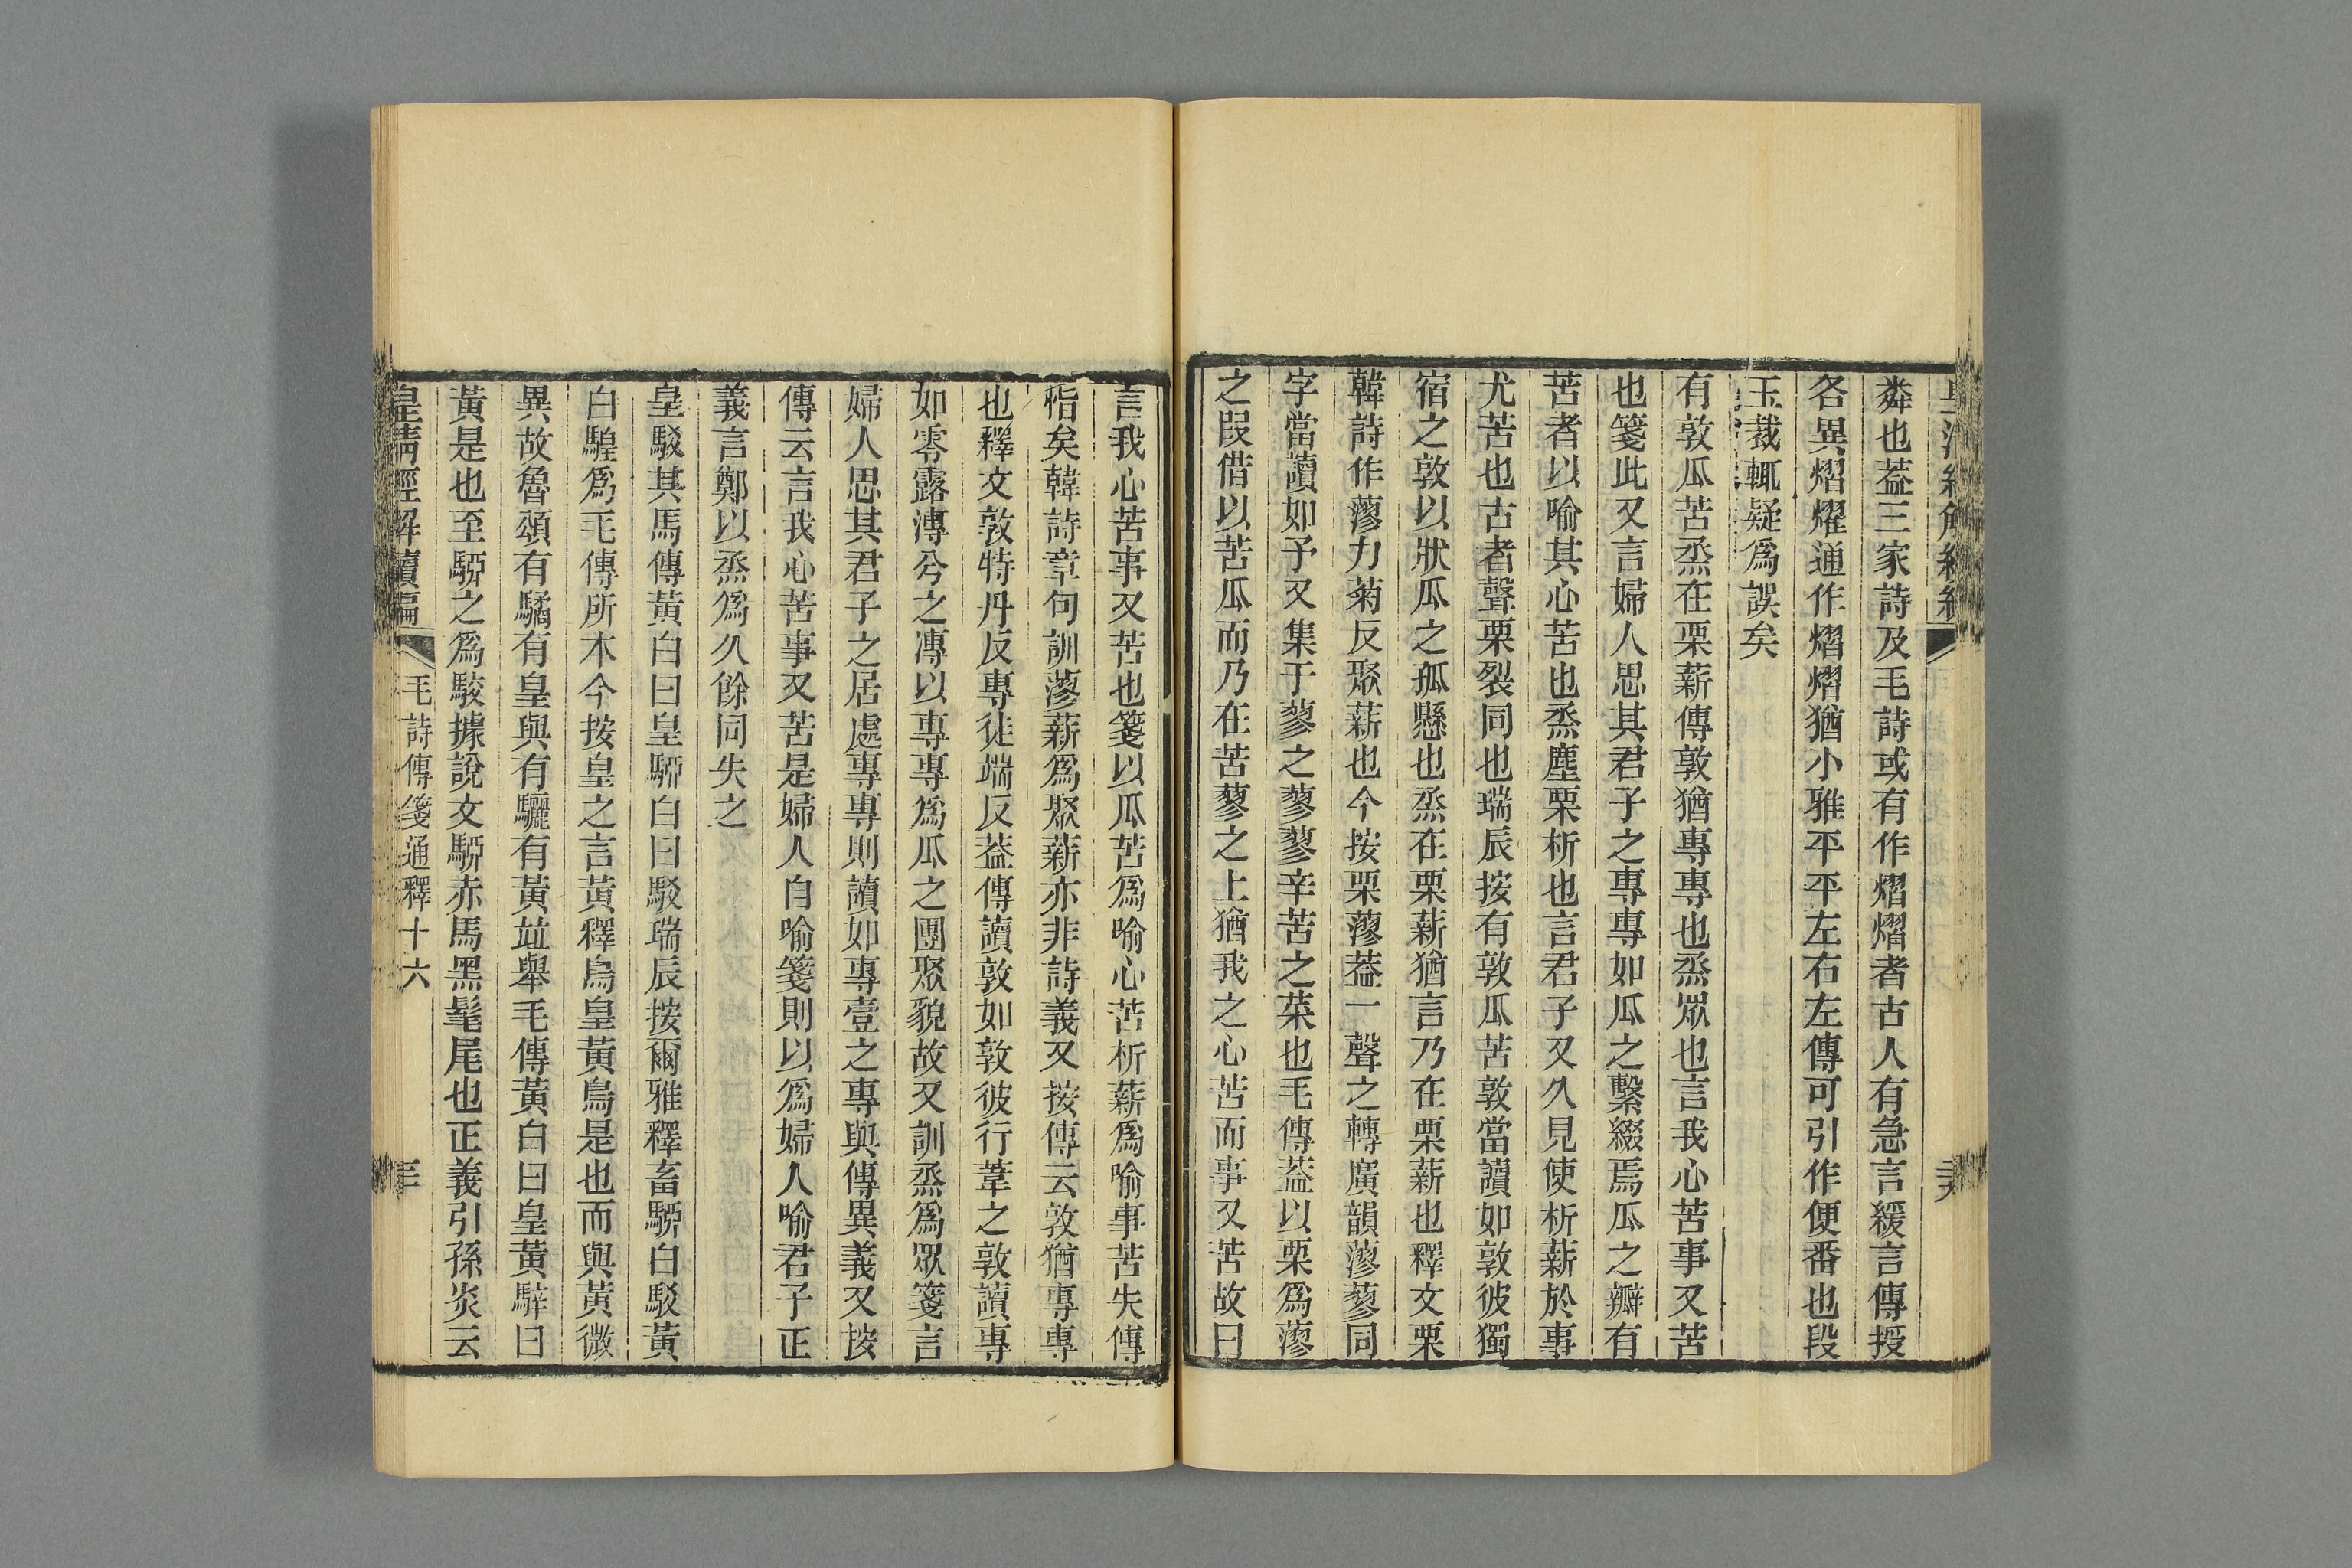 粦也葢三家詩及毛詩或有作熠熠者古人有急言緩言傳授
各異熠燿通作熠熠猶小雅平平左右左傳可引作便番也段
玉裁輒疑爲誤矣
有敦瓜苦烝在栗薪傳敦猶專專也烝眾也言我心苦事又苦
也箋此又言婦人思其君子之專專如瓜之繫綴焉瓜之瓣有
苦者以喻其心苦也烝塵栗析也言君子又久見使析薪於事
尤苦也古者聲栗裂同也瑞辰按有敦瓜苦敦當讀如敦彼獨
宿之敦以狀瓜之孤懸也烝在栗薪猶言乃在栗薪也釋文栗
韓詩作蓼力菊反聚薪也今按栗蓼葢一聲之轉廣韻蓼蓼同
字當讀如予又集于蓼之蓼蓼辛苦之菜也毛傳葢以栗爲蓼
之叚借以苦瓜而乃在苦蓼之上猶我之心苦而事又苦故曰
言我心苦事又苦也箋以瓜苦爲喻心苦析薪爲喻事苦失傳
恉矣韓詩章句訓蓼薪爲聚薪亦非詩義又按傳云敦猶專專
也釋文敦特丹反專徒端反葢傳讀敦如敦彼行葦之敦讀專
如零露漙兮之漙以專專爲瓜之團聚貌故又訓烝爲眾箋言
婦人思其君子之居處專專則讀如專壹之專與傳異義又按
傳云言我心苦事又苦是婦人自喻箋則以爲婦人喻君子正
義言鄭以烝爲久餘同失之
皇駁其馬傳黃白曰皇騢白曰駁瑞辰按爾雅釋畜騢白駁黃
白騜爲毛傳所本今按皇之言黃釋鳥皇黃鳥是也而與黃微
異故魯頌有驈有皇與有驪有黃竝舉毛傳黃白曰皇黃騂曰
黃是也至騢之爲駁據說文騢赤馬黑髦尾也正義引孫炎云
皇清經解續編 毛詩傳箋通釋十六